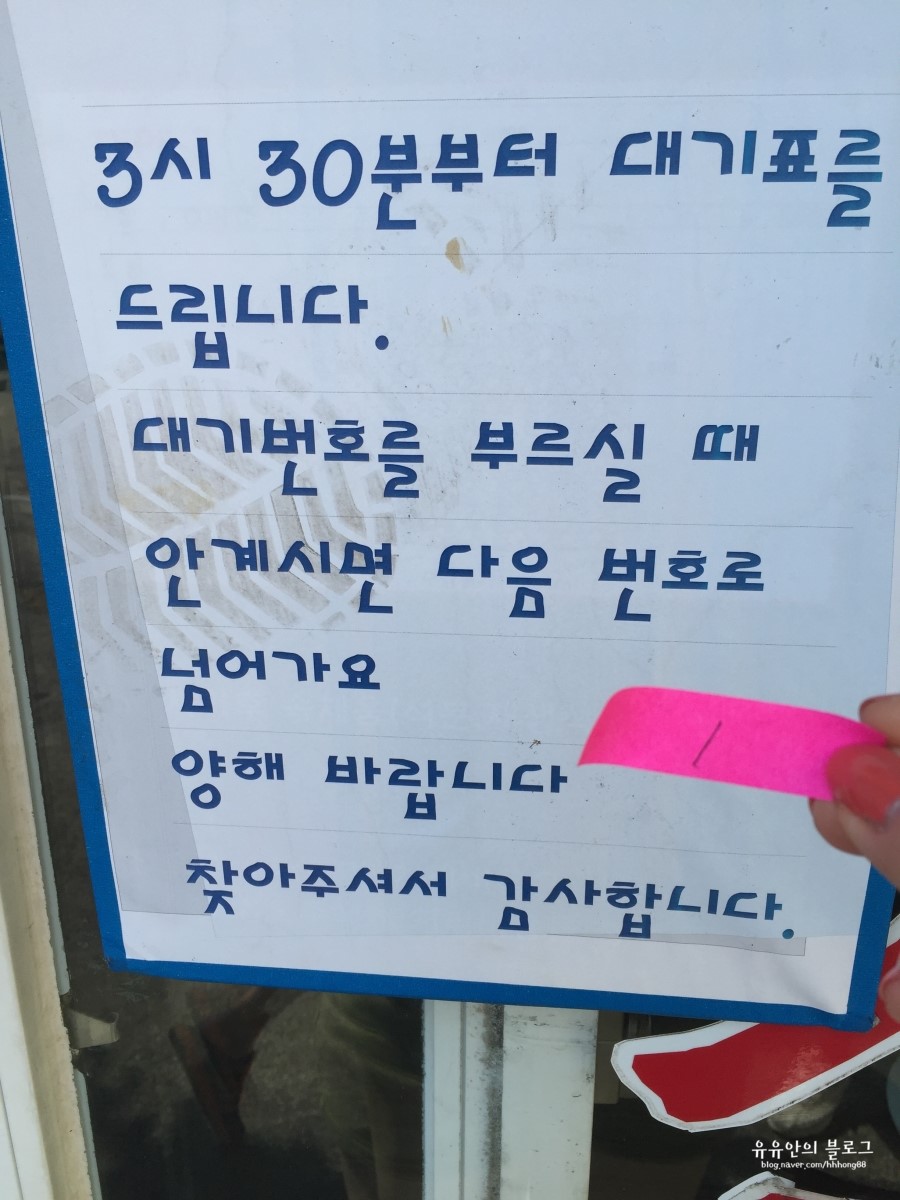 3시 30분부터 대기표를
드립니다.
대기번호를 부르실 때
안계시면 다음 번호로
넘어가요
양해 바랍니다
찾아주셔서 감사합니다.
1
유유안의 블로그
blog.naver.com/hhhong88